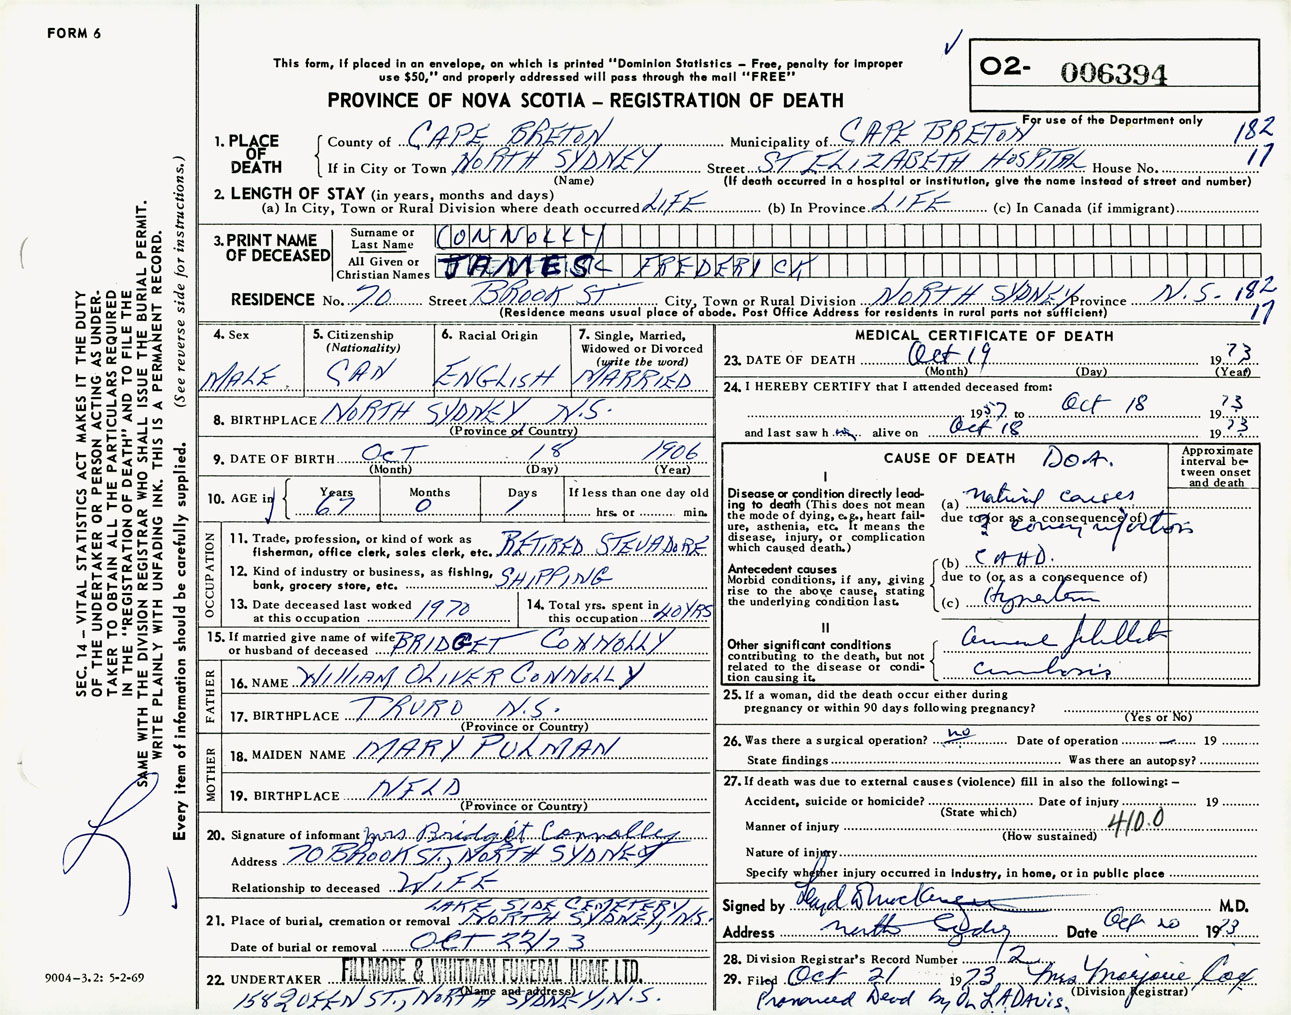 FORM 6
This form, if placed in an envelope, on which is printed "Dominion Statistics – Free, penalty for improper
use $50," and properly addressed will pass through the mail "FREE"
PROVINCE OF NOVA SCOTIA – REGISTRATION OF DEATH
O2- 006394
For use of the Department only
1. PLACE OF DEATH
County of CAPE BRETON Municipality of CAPE BRETON 182
If in City or Town NORTH SYDNEY Street ST ELIZABETH HOSPITAL House No. 17
(Name) (If death occurred in a hospital or institution, give the name instead of street and number)
2. LENGTH OF STAY (in years, months and days)
(a) In City, Town or Rural Division where death occurred LIFE (b) In Province LIFE (c) In Canada (if immigrant)
3. PRINT NAME OF DECEASED
Surname or Last Name CONNOLLY
All Given or Christian Names JAMES FREDERICK
RESIDENCE No. 70 Street BROOK ST City, Town or Rural Division NORTH SYDNEY Province N.S. 182
(Residence means usual place of abode. Post Office Address for residents in rural parts not sufficient) 17
4. Sex MALE
5. Citizenship (Nationality) CAN
6. Racial Origin ENGLISH
7. Single, Married, Widowed or Divorced (write the word) MARRIED
8. BIRTHPLACE NORTH SYDNEY N.S.
(Province or Country)
9. DATE OF BIRTH OCT 18 1906
(Month) (Day) (Year)
10. AGE in Years 67 Months 0 Days 1 If less than one day old
hrs. or min.
OCCUPATION
11. Trade, profession, or kind of work as
fisherman, office clerk, sales clerk, etc. RETIRED STEVADORE
12. Kind of industry or business, as fishing,
bank, grocery store, etc. SHIPPING
13. Date deceased last worked
at this occupation 1970
14. Total yrs. spent in
this occupation 40 YRS
15. If married give name of wife
or husband of deceased BRIDGET CONNOLLY
FATHER
16. NAME WILLIAM OLIVER CONNOLLY
17. BIRTHPLACE TRURO N.S.
(Province or Country)
MOTHER
18. MAIDEN NAME MARY PULMAN
19. BIRTHPLACE NFLD
(Province or Country)
20. Signature of informant Mrs Bridget Connolly
Address 70 BROOK ST., NORTH SYDNEY
Relationship to deceased WIFE
LAKE SIDE CEMETERY
21. Place of burial, cremation or removal NORTH SYDNEY, N.S.
Date of burial or removal OCT 22/73
22. UNDERTAKER FILLMORE & WHITMAN FUNERAL HOME LTD.
(Name and address)
158 QUEEN ST., NORTH SYDNEY, N.S.
MEDICAL CERTIFICATE OF DEATH
23. DATE OF DEATH Oct 19 1973
(Month) (Day) (Year)
24. I HEREBY CERTIFY that I attended deceased from:
1957 to Oct 18 1973
and last saw h alive on Oct 18 1973
CAUSE OF DEATH DOA.
Approximate interval between onset and death
I
Disease or condition directly leading to death (This does not mean
the mode of dying, e.g., heart failure, asthenia, etc. It means the
disease, injury, or complication
which caused death.)
(a) natural causes
due to (or as a consequence of)
? coronary infarction
Antecedent causes
Morbid conditions, if any, giving
rise to the above cause, stating
the underlying condition last.
(b) C AHD.
due to (or as a consequence of)
(c)
II
Other significant conditions
contributing to the death, but not
related to the disease or condition causing it.
25. If a woman, did the death occur either during
pregnancy or within 90 days following pregnancy?
(Yes or No)
26. Was there a surgical operation? no Date of operation 19
State findings Was there an autopsy?
27. If death was due to external causes (violence) fill in also the following: –
Accident, suicide or homicide? Date of injury 19
(State which)
Manner of injury 410.0
(How sustained)
Nature of injury
Specify whether injury occurred in industry, in home, or in public place
Signed by M.D.
Address North Sydney Date Oct 20 1973
28. Division Registrar's Record Number 12
29. Filed Oct 21 1973 Mrs Marjorie Cox
(Division Registrar)
Pronounced Dead by Dr. L A DAVIS.
SEC. 14 – VITAL STATISTICS ACT MAKES IT THE DUTY
OF THE UNDERTAKER OR PERSON ACTING AS UNDER-
TAKER TO OBTAIN ALL THE PARTICULARS REQUIRED
IN THE "REGISTRATION OF DEATH" AND TO FILE THE
SAME WITH THE DIVISION REGISTRAR WHO SHALL ISSUE THE BURIAL PERMIT.
WRITE PLAINLY WITH UNFADING INK. THIS IS A PERMANENT RECORD.
Every item of information should be carefully supplied. (See reverse side for instructions.)
9004-3.2: 5-2-69